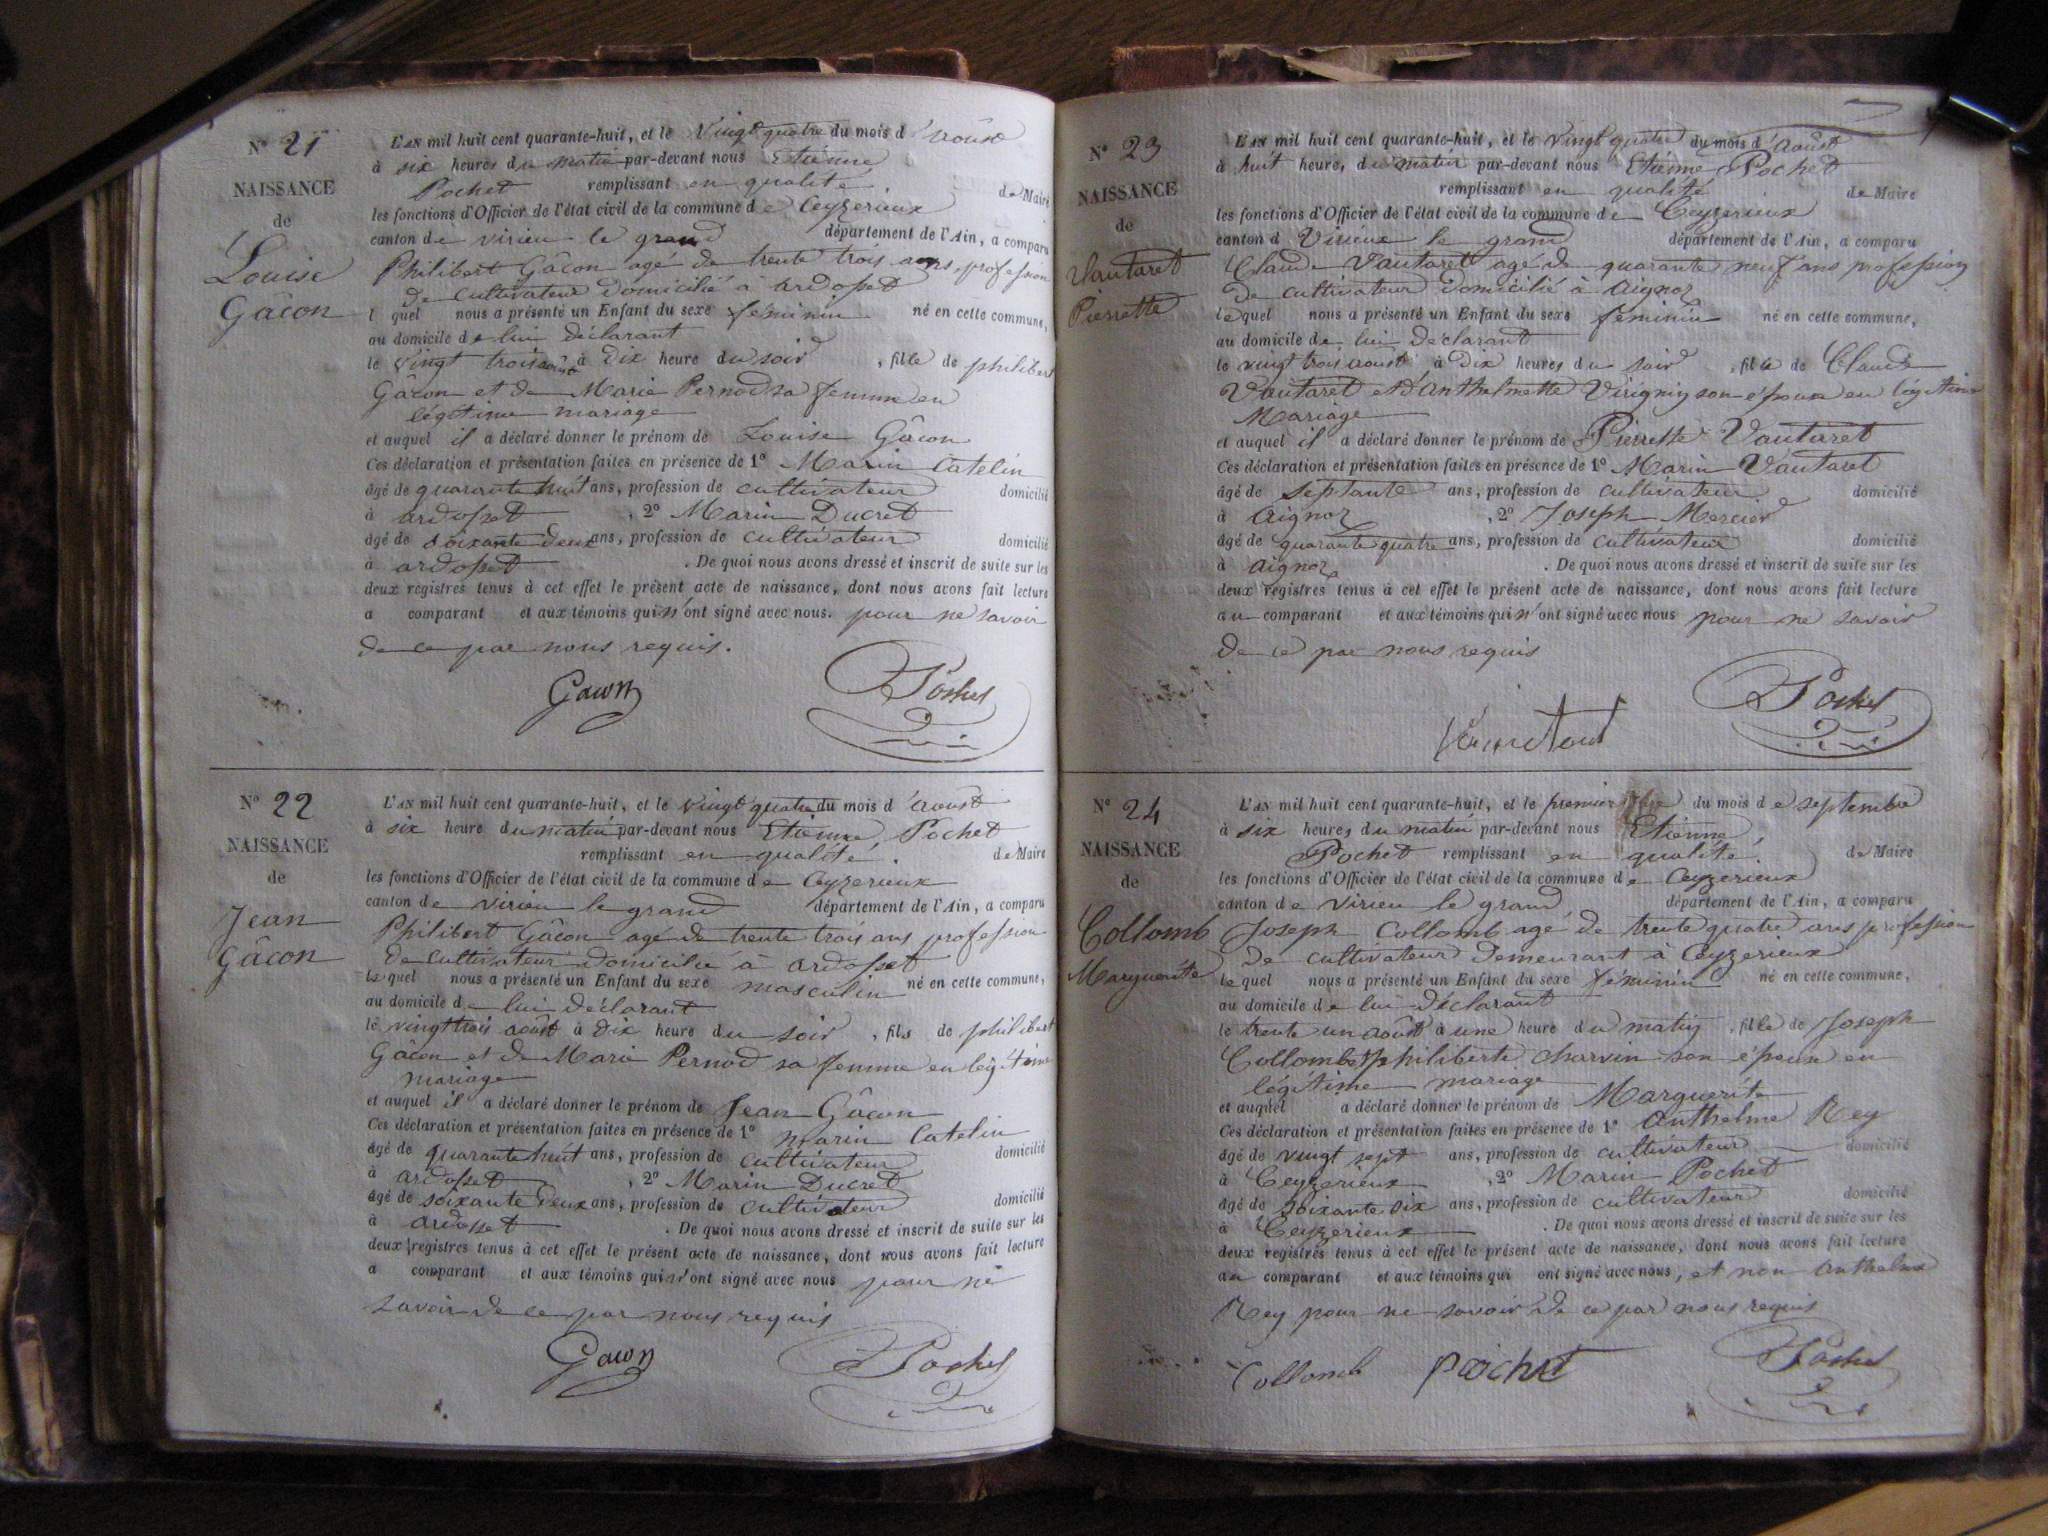 N° 21
NAISSANCE
de
Louise
Gâcon
L'AN mil huit cent quarante-huit, et le vingt quatre du mois d'août
à six heures du matin par-devant nous Etienne
Pochet remplissant en qualité de Maire
les fonctions d'Officier de l'état civil de la commune de Ceyzerieux
canton de virieu le grand département de l'Ain, a comparu
Philibert Gâcon agé de trente trois ans, profession
de cultivateur domicilié à ardosset
l quel nous a présenté un Enfant du sexe féminin né en cette commune,
au domicile de lui déclarant
le vingt trois août à dix heure du soir, fille de philibert
Gâcon et de Marie Pernod sa femme en
légitime mariage
et auquel il a déclaré donner le prénom de Louise Gâcon
Ces déclaration et présentation faites en présence de 1° Marin Catelin
âgé de quarante huit ans, profession de cultivateur domicilié
à ardosset, 2° Marin Ducret
âgé de soixante deux ans, profession de cultivateur domicilié
à ardosset. De quoi nous avons dressé et inscrit de suite sur les
deux registres tenus à cet effet le présent acte de naissance, dont nous avons fait lecture
a comparant et aux témoins qui n'ont signé avec nous. pour ne savoir
de ce par nous requis.
Gacon Pochet
N° 22
NAISSANCE
de
Jean
Gâcon
L'AN mil huit cent quarante-huit, et le vingt quatre du mois d'août
à six heure du matin par-devant nous Etienne Pochet
remplissant en qualité de Maire
les fonctions d'Officier de l'état civil de la commune de Ceyzerieux
canton de virieu le grand département de l'Ain, a comparu
Philibert Gâcon agé de trente trois ans profession
de cultivateur domicilié à ardosset
lequel nous a présenté un Enfant du sexe masculin né en cette commune,
au domicile de lui déclarant
le vingt trois août à dix heure du soir, fils de philibert
Gâcon et de Marie Pernod sa femme en légitime
mariage
et auquel il a déclaré donner le prénom de Jean Gâcon
Ces déclaration et présentation faites en présence de 1° marin Catelin
âgé de quarante huit ans, profession de cultivateur domicilié
à ardosset, 2° Marin Ducret
âgé de soixante deux ans, profession de cultivateur domicilié
à ardosset. De quoi nous avons dressé et inscrit de suite sur les
deux registres tenus à cet effet le présent acte de naissance, dont nous avons fait lecture
a comparant et aux témoins qui n'ont signé avec nous pour ne
savoir de ce par nous requis
Gacon Pochet
N° 23
NAISSANCE
de
Vautaret
Pierrette
L'AN mil huit cent quarante-huit, et le vingt quatre du mois d'août
à huit heure, du matin par-devant nous Etienne Pochet
remplissant en qualité de Maire
les fonctions d'Officier de l'état civil de la commune de Ceyzerieux
canton d Virieux le grand département de l'Ain, a comparu
Claude Vautaret agé de quarante neuf ans profession
de cultivateur domicilié à aignoz
lequel nous a présenté un Enfant du sexe féminin né en cette commune,
au domicile de lui déclarant
le vingt trois août à dix heures du soir, fille de Claude
Vautaret et d'anthelmette Virignin son épouse en légitime
Mariage
et auquel il a déclaré donner le prénom de Pierrette Vautaret
Ces déclaration et présentation faites en présence de 1° Marin Vautaret
âgé de septante ans, profession de cultivateur domicilié
à aignoz, 2° Joseph Mercier
âgé de quarante quatre ans, profession de cultivateur domicilié
à aignoz. De quoi nous avons dressé et inscrit de suite sur les
deux registres tenus à cet effet le présent acte de naissance, dont nous avons fait lecture
au comparant et aux témoins qui n'ont signé avec nous pour ne savoir
de ce par nous requis
Pochet
N° 24
NAISSANCE
de
Collomb
Marguerite
L'AN mil huit cent quarante-huit, et le premier du mois de septembre
à six heures du matin par-devant nous Etienne
Pochet remplissant en qualité de Maire
les fonctions d'Officier de l'état civil de la commune de Ceyzerieux
canton de virieu le grand département de l'Ain, a comparu
Joseph Collomb agé de trente quatre ans profession
de cultivateur demeurant à Ceyzerieux
lequel nous a présenté un Enfant du sexe féminin né en cette commune,
au domicile de lui déclarant
le trente un août à une heure du matin, fille de Joseph
Collomb et philiberte charvin son épouse en
légitime mariage
et auquel a déclaré donner le prénom de Marguerite
Ces déclaration et présentation faites en présence de 1° anthelme Rey
âgé de vingt sept ans, profession de cultivateur domicilié
à Ceyzerieux, 2° Marin Pochet
âgé de soixante six ans, profession de cultivateur domicilié
à Ceyzerieux. De quoi nous avons dressé et inscrit de suite sur les
deux registres tenus à cet effet le présent acte de naissance, dont nous avons fait lecture
au comparant et aux témoins qui ont signé avec nous, et non anthelme
Rey pour ne savoir de ce par nous requis
Collomb pochet Pochet